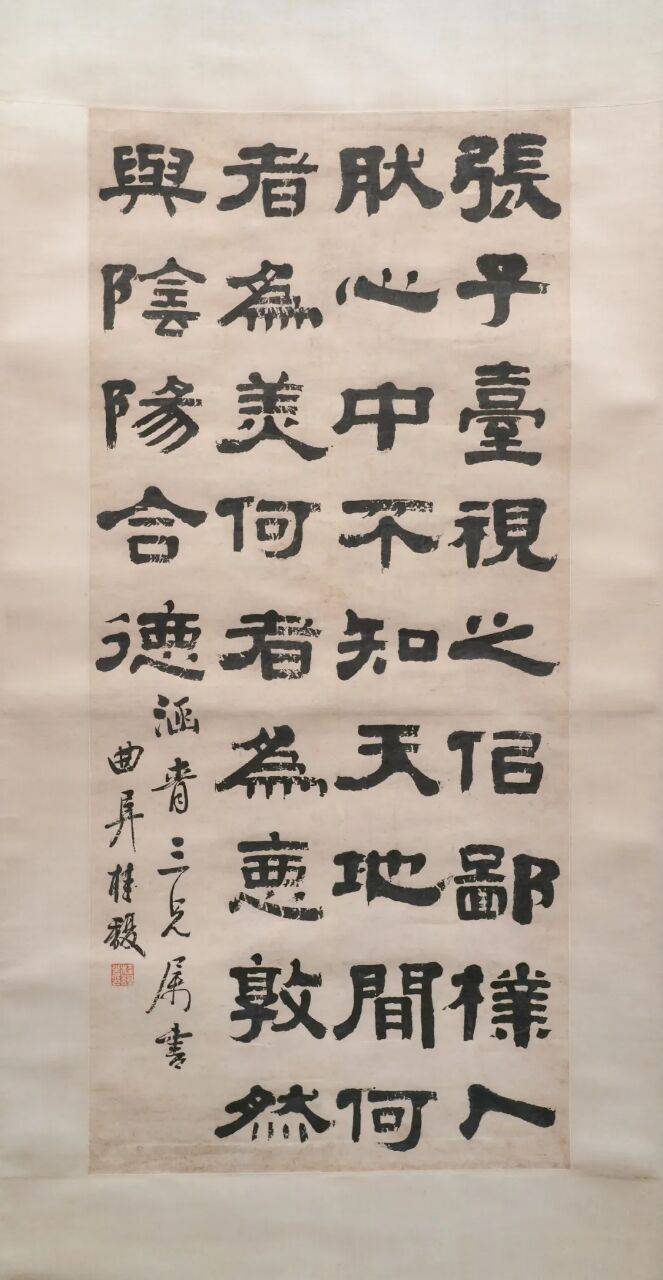 張子臺視之佀鄙樸人
肰心中不知天地間何
者為美何者為惡敦然
與陰陽合德
涵青三兄属書
曲阜桂馥